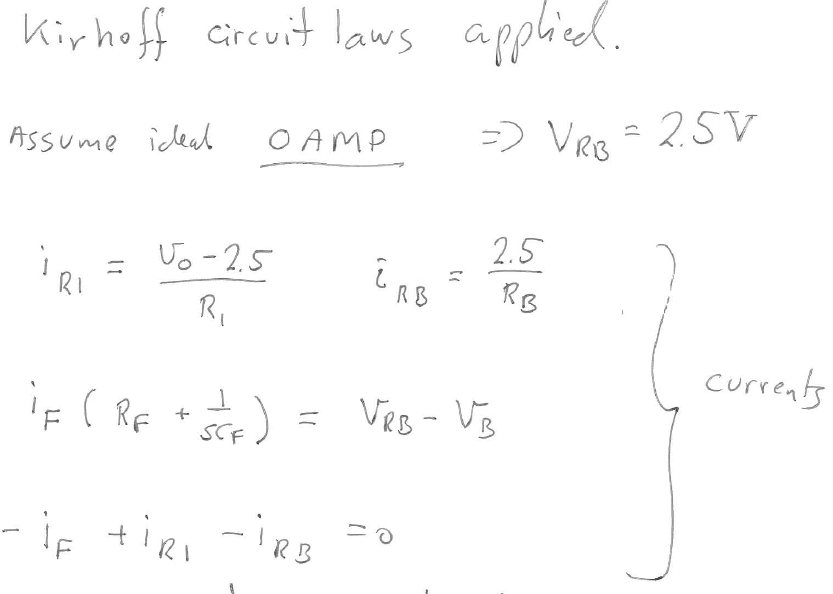 Kirhoff circuit laws applied.
Assume ideal OAMP => V_RB = 2.5V
i_R1 = (v_o - 2.5) / R_1    i_RB = 2.5 / R_B
i_F ( R_F + 1/(sC_F) ) = V_RB - V_B
currents
- i_F + i_R1 - i_RB = 0